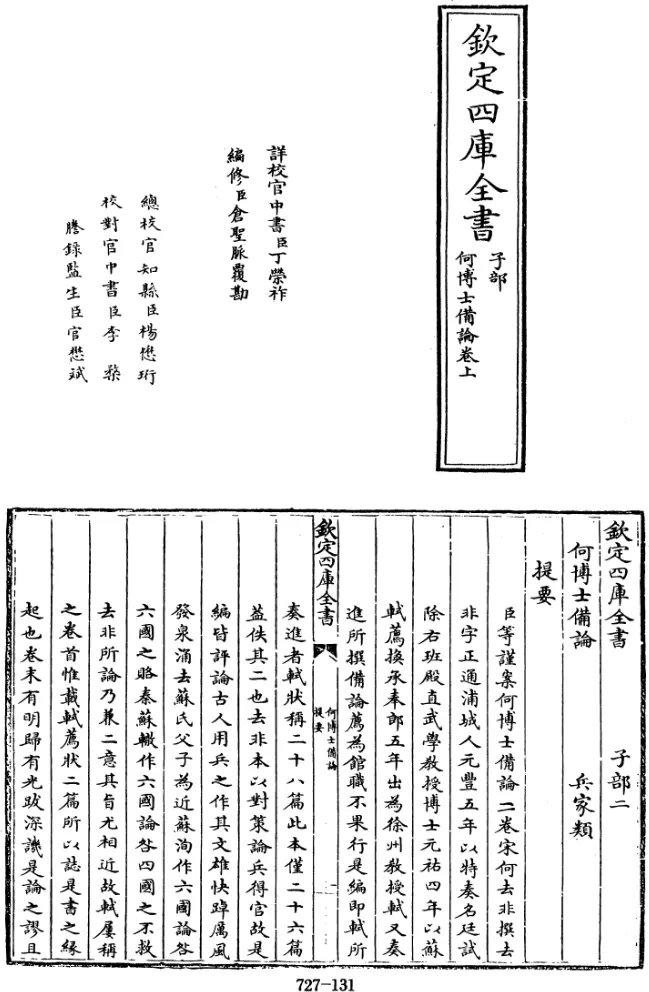 欽定四庫全書
子部
何博士備論卷上
詳校官中書臣丁榮祚
編修臣倉聖脈覆勘
總校官知縣臣楊懋珩
校對官中書臣李
謄錄監生臣官懋斌
欽定四庫全書 子部二
何博士備論 兵家類
提要
臣等謹案何博士備論二卷宋何去非撰去
非字正通浦城人元豐五年以特奏名廷試
除右班殿直武學教授博士元祐四年以蘇
軾薦換承奉郎五年出為徐州教授軾又奏
進所撰備論薦為館職不果行是編即軾所
欽定四庫全書
何博士備論
提要
一
奏進者軾狀稱二十八篇此本僅二十六篇
葢佚其二也去非本以對策論兵得官故是
編皆評論古人用兵之作其文雄快踔厲風
發泉涌去蘇氏父子為近蘇洵作六國論咎
六國之賂秦蘇轍作六國論咎四國之不救
去非所論乃兼二意其旨尤相近故軾屢稱
之卷首惟載軾薦狀二篇所以誌是書之緣
起也卷末有明歸有光跋深譏是論之謬且
727-131